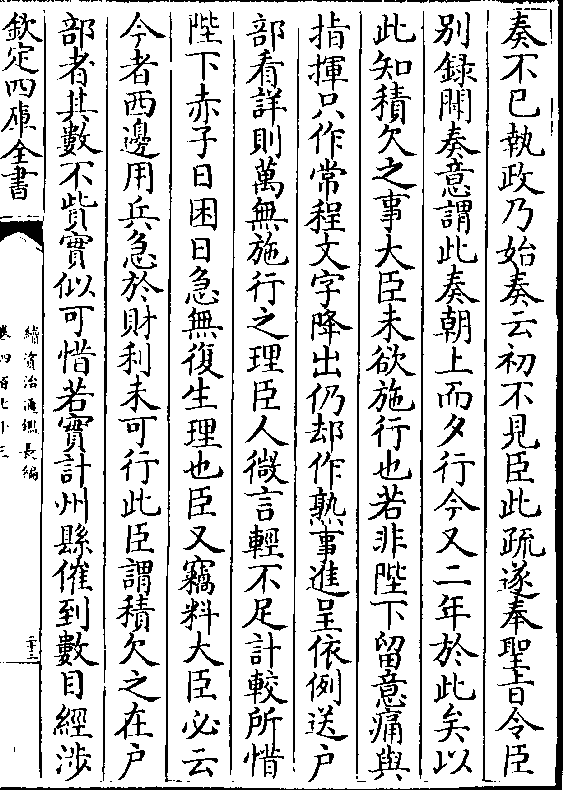 奏不已執政乃始奏云初不見臣此疏遂奉聖旨令臣
别録聞奏意謂此奏朝上而夕行今又二年於此矣以
此知積欠之事大臣未欲施行也若非陛下留意痛與
指揮只作常程文字降出仍却作熟事進呈依例送户
部看詳則萬無施行之理臣人微言輕不足計較所惜
陛下赤子日困日急無復生理也臣又竊料大臣必云
今者西邊用兵急於財利未可行此臣謂積欠之在户
部者其數不貲實似可惜若實計州縣催到數目經涉
欽定四庫全書
續資治通鑑長編
卷四百七十三
二十三